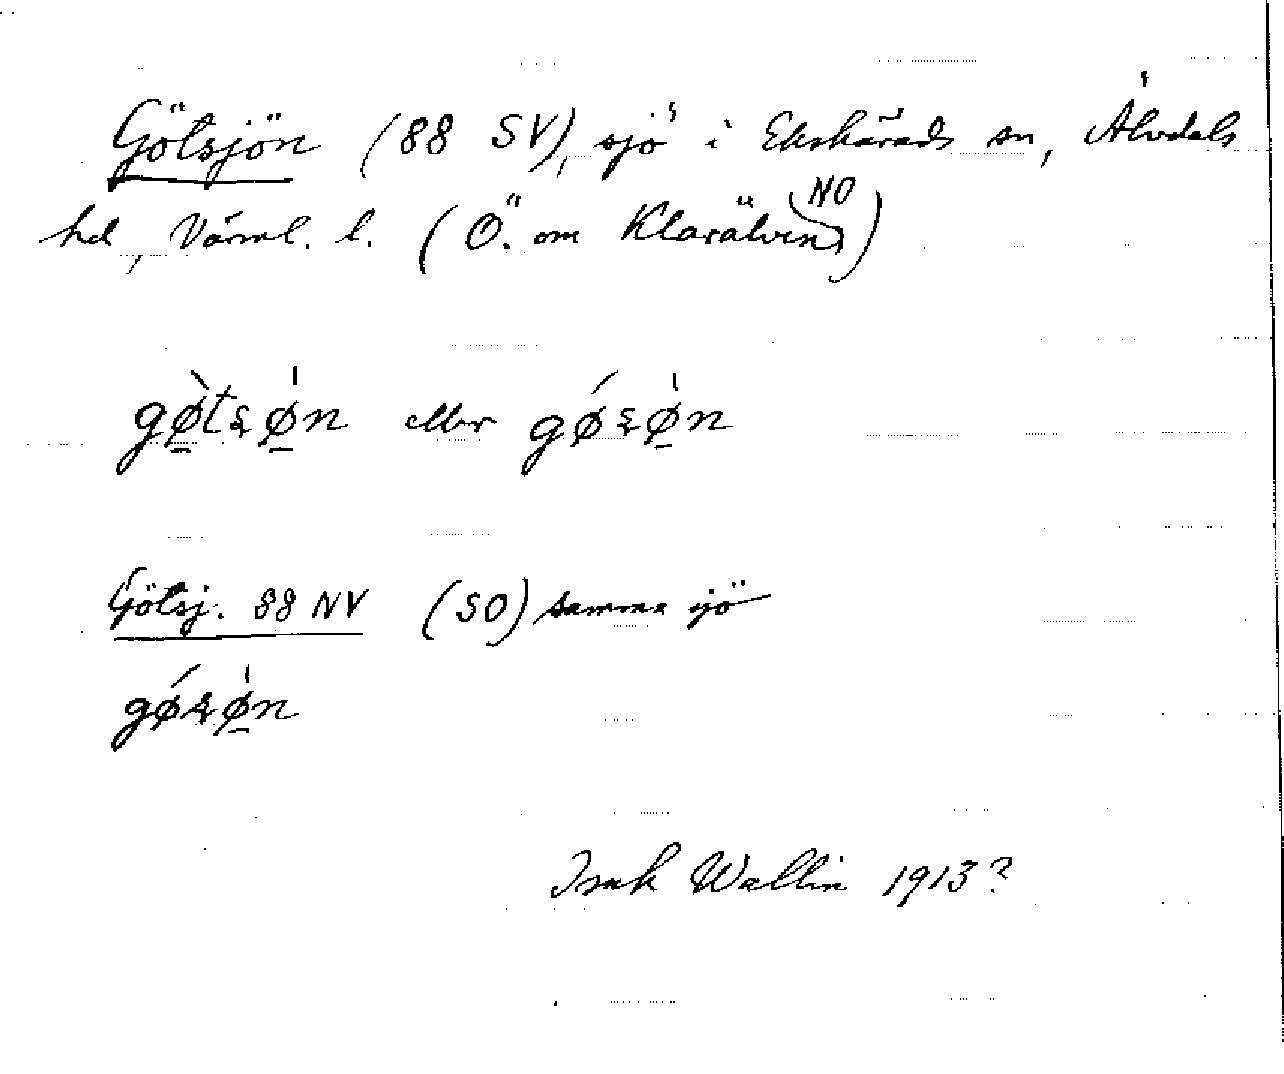 Götsjön (88 SV), sjö i Ekshärads sn, Älvdals
hd, Värml. l. (Ö. om Klarälven) NO
gø̀tʂø̀n eller gǿʂø̀n
Götsj. 88 NV (SO) samma sjö
gǿʂø̀n
Isak Wallin 1913?